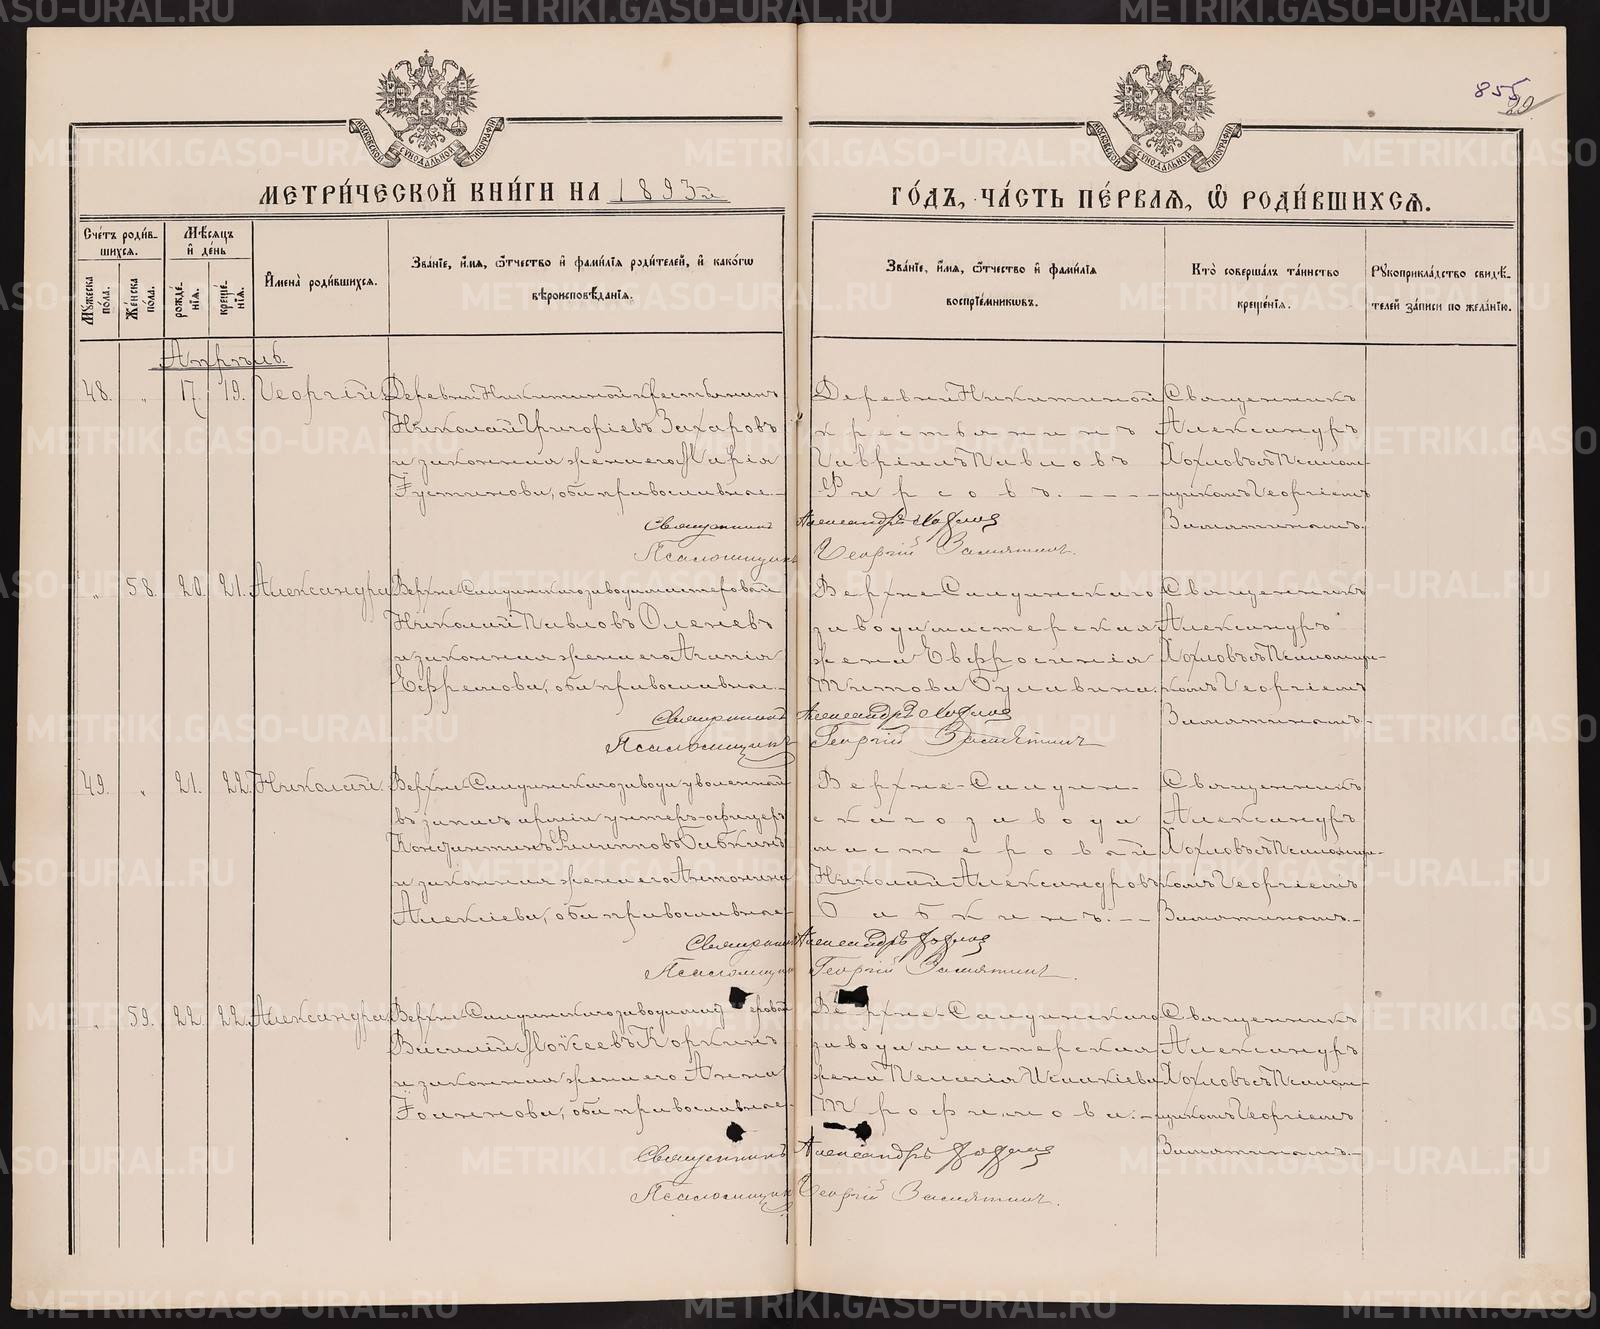 855
29
МОСКОВСКОЙ СѴНОДАЛЬНОЙ ТИПОГРАФІИ
МОСКОВСКОЙ СѴНОДАЛЬНОЙ ТИПОГРАФІИ
МЕТРИ́ЧЕСКОЙ КНИ́ГИ НА 1893й
ГО́ДЪ, ЧА́СТЬ ПЕ́РВАѦ, Ѡ РОДИ́ВШИХСѦ.
Сче́тъ роди́в-
шихсѧ.
Мѣ́сѧцъ
и де́нь
Мꙋжеска
по́ла.
Же́нска
по́ла.
рожде́-
нїѧ.
креще́-
нїѧ.
Имена̀ роди́вшихсѧ.
Зва́нїе, и́мѧ, ѻ҆́тчество и фами́лїѧ роди́телей, и како́гѡ
вѣроисповѣ́данїѧ.
Зва́нїе, и́мѧ, ѻ҆́тчество и фами́лїѧ
воспрїе́мникѡвъ.
Кто̀ соверша́лъ та́инство
креще́нїѧ.
Рꙋкоприкла́дство свидѣ́-
телей за́писи по жела́нїю.
Апрѣль.
48. „ 17. 19. Георгій
Деревни Никитиной крестьянинъ
Николай Григоріевъ Захаровъ
и законная жена его Марія
Іустинова, оба православные.
Деревни Никитиной
крестьянинъ
Гавріилъ Павловъ
Фирсовъ.
Священникъ
Александръ
Хохловъ съ Псалом-
щикомъ Георгіемъ
Замятинымъ.
Священникъ Александръ Хохлов
Псаломщикъ Георгій Замятинъ.
„ 58. 20. 21. Александра
Верхне-Салдинскаго завода мастеровой
Николай Павловъ Оленевъ
и законная жена его Агапія
Ефремова, оба православные.
Верхне-Салдинскаго
завода мастерская
жена Евфросинія
Титова Булавина.
Священникъ
Александръ
Хохловъ съ Псаломщи-
комъ Георгіемъ
Замятинымъ.
Священникъ Александръ Хохлов
Псаломщикъ Георгій Замятинъ
49. „ 21. 22. Николай
Верхне-Салдинскаго завода уволенный
въ запасъ арміи унтеръ-офицеръ
Константинъ Филипповъ Бабкинъ
и законная жена его Антонина
Алексіева, оба православные.
Верхне-Салдин-
скаго завода
мастеровой
Николай Александровъ
Бабкинъ.
Священникъ
Александръ
Хохловъ съ Псаломщи-
комъ Георгіемъ
Замятинымъ.
Священникъ Александръ Хохлов
Псаломщикъ Георгій Замятинъ.
„ 59. 22. 22. Александра
Верхне-Салдинскаго завода мастеровой
Василій Моѵсеевъ Коркинъ
и законная жена его Анна
Іоаннова, оба православные.
Верхне-Салдинскаго
завода мастерская
жена Пелагія Исаакіева
Трофимова.
Священникъ
Александръ
Хохловъ съ Псалом-
щикомъ Георгіемъ
Замятинымъ.
Священникъ Александръ Хохлов
Псаломщикъ Георгій Замятинъ.
METRIKI.GASO-URAL.RU